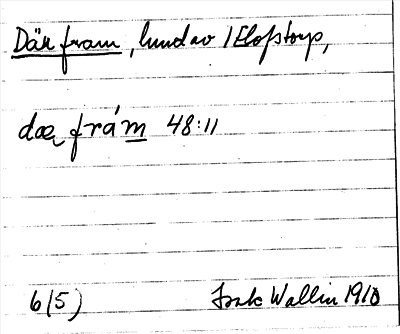 Där fram, lund av 1 Elofstorp,
dœ̨ frám 48:11
6(5) Isak Wallin 1910